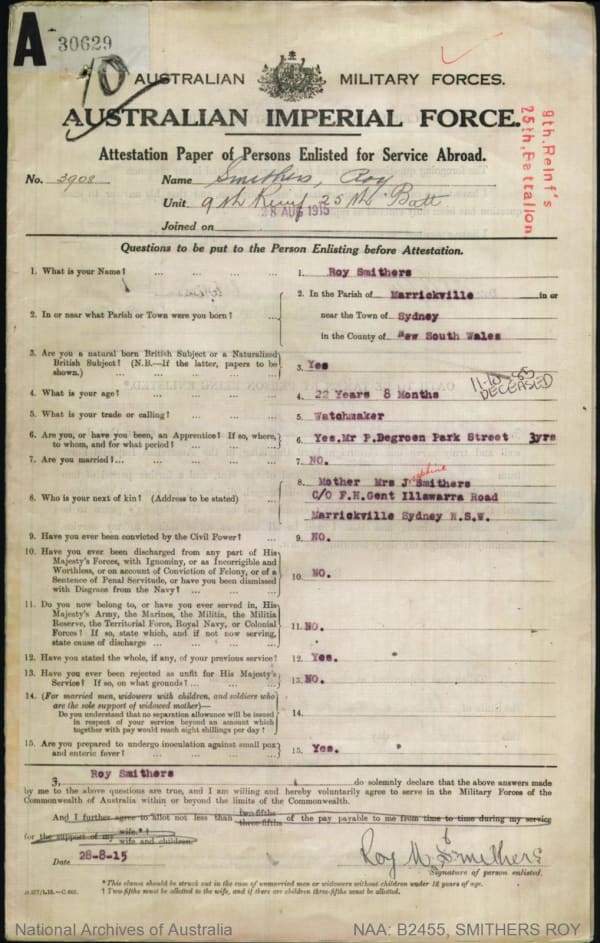 A 30629
10
AUSTRALIAN MILITARY FORCES.
AUSTRALIAN IMPERIAL FORCE.
Attestation Paper of Persons Enlisted for Service Abroad.
8th. Reinf's
25th. Battalion
No. 3908 Name Smithers, Roy
Unit 9th Reinf 25th Batt
28 AUG 1915
Joined on
Questions to be put to the Person Enlisting before Attestation.
1. What is your Name? ... ... ... ... 1. Roy Smithers
2. In or near what Parish or Town were you born? ... 2. In the Parish of Marrickville in or
near the Town of Sydney
in the County of New South Wales
3. Are you a natural born British Subject or a Naturalized
British Subject? (N.B.—If the latter, papers to be
shown.) ... ... ... ... 3. Yes
4. What is your age? ... ... ... ... 4. 22 Years 8 Months
11-10-55
DECEASED
5. What is your trade or calling? ... ... ... 5. Watchmaker
6. Are you, or have you been, an Apprentice? If so, where,
to whom, and for what period? ... ... ... 6. Yes.Mr P.Degroen Park Street 3yrs
7. Are you married?... ... ... ... ... 7. NO.
8. Who is your next of kin? (Address to be stated) ... 8 Mother Mrs Josephine Smithers
C/O F.H.Gent Illawarra Road
Marrickville Sydney N.S.W.
9. Have you ever been convicted by the Civil Power? ... 9. NO.
10. Have you ever been discharged from any part of His
Majesty's Forces, with Ignominy, or as Incorrigible and
Worthless, or on account of Conviction of Felony, or of a
Sentence of Penal Servitude, or have you been dismissed
with Disgrace from the Navy? ... ... ... 10. NO.
11. Do you now belong to, or have you ever served in, His
Majesty's Army, the Marines, the Militia, the Militia
Reserve, the Territorial Force, Royal Navy, or Colonial
Forces? If so, state which, and if not now serving,
state cause of discharge ... ... ... 11. NO.
12. Have you stated the whole, if any, of your previous service? 12. Yes.
13. Have you ever been rejected as unfit for His Majesty's
Service? If so, on what grounds? ... ... ... 13. NO.
14. (For married men, widowers with children, and soldiers who
are the sole support of widowed mother)—
Do you understand that no separation allowance will be issued
in respect of your service beyond an amount which
together with pay would reach eight shillings per day? 14.
15. Are you prepared to undergo inoculation against small pox
and enteric fever? ... ... ... ... 15. Yes.
I, Roy Smithers do solemnly declare that the above answers made
by me to the above questions are true, and I am willing and hereby voluntarily agree to serve in the Military Forces of the
Commonwealth of Australia within or beyond the limits of the Commonwealth.
And I further agree to allot not less than two-fifths three-fifths of the pay payable to me from time to time during my service
for the support of my wife.*† wife and children.
Date 28-8-15 Roy M Smithers
Signature of person enlisted.
* This clause should be struck out in the case of unmarried men or widowers without children under 18 years of age.
† Two-fifths must be allotted to the wife, and if there are children three-fifths must be allotted.
National Archives of Australia NAA: B2455, SMITHERS ROY